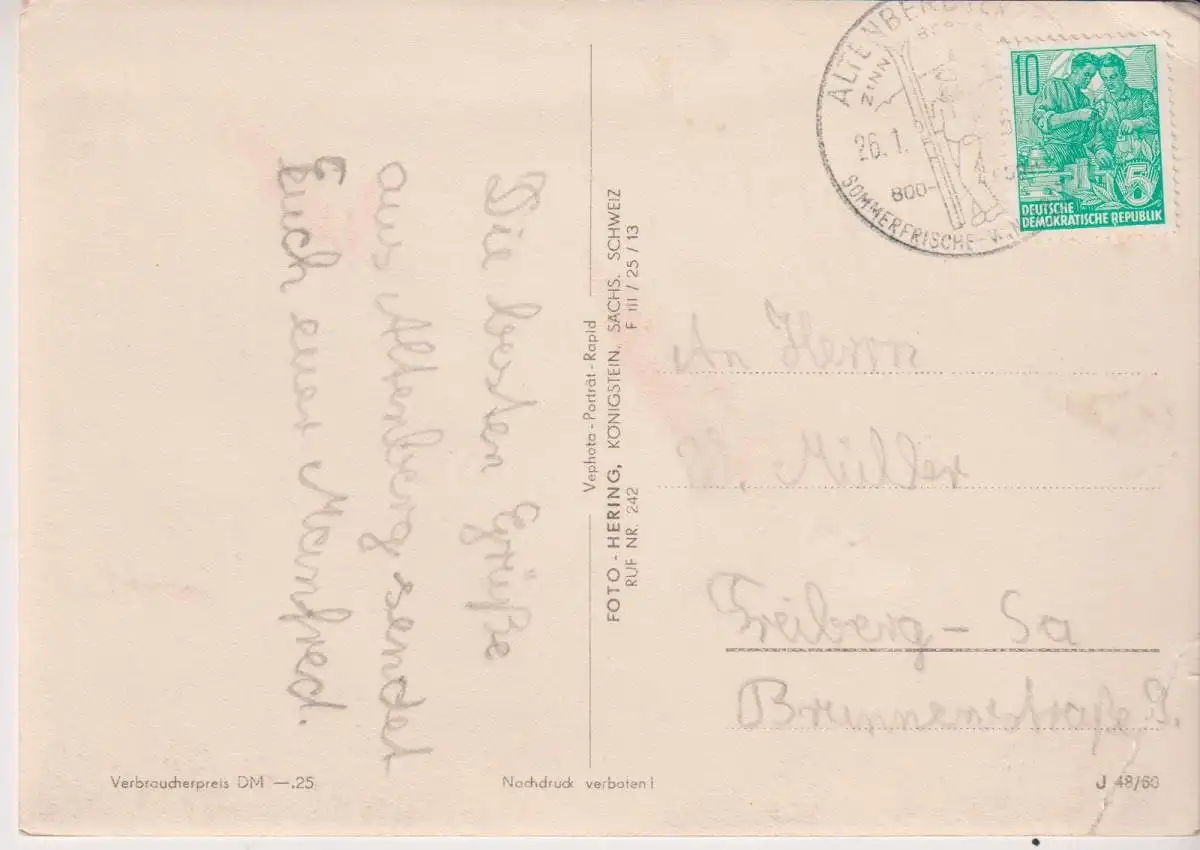 Die besten Grüße
aus Altenberg sendet
Euch euer Manfred.
Vephota - Porträt - Rapid
FOTO - HERING, KÖNIGSTEIN, SÄCHS. SCHWEIZ
RUF NR. 242 F III / 25 / 13
ALTENBERG
ZINN
26.1.
800-
SOMMERFRISCHE - 
10
5
DEUTSCHE
DEMOKRATISCHE REPUBLIK
An Herrn
Müller
Freiberg - Sa
Brunnenstraße 9.
Verbraucherpreis DM —.25
Nachdruck verboten!
J 48/60